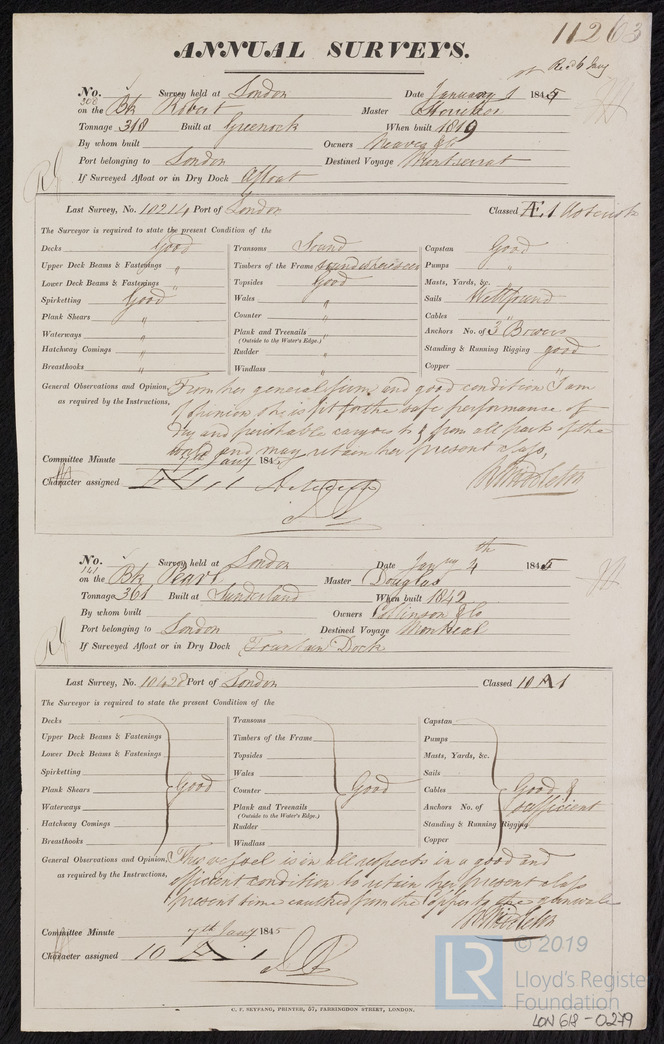 11263
ANNUAL SURVEYS.
Rec 6 Jany
No. Survey held at London Date January 1 1845
308
on the Bk Robert Master
Tonnage 310 Built at Greenock When built 1819
By whom built Owners Neave & Co
Port belonging to London Destined Voyage Montserrat
If Surveyed Afloat or in Dry Dock Afloat
Last Survey, No. 10214 Port of London Classed Æ 1 Asterisk
The Surveyor is required to state the present Condition of the
Decks Good Transoms Sound Capstan Good
Upper Deck Beams & Fastenings " Timbers of the Frame sound where seen Pumps "
Lower Deck Beams & Fastenings " Topsides Good Masts, Yards, &c. "
Spirketting Good Wales " Sails Well found
Plank Shears " Counter " Cables "
Waterways " Plank and Treenails " Anchors No. of 3 Bowers
(Outside to the Water's Edge.)
Hatchway Comings " Rudder " Standing & Running Rigging good
Breasthooks " Windlass " Copper "
General Observations and Opinion, From her general form and good condition I am
as required by the Instructions, of opinion she is fit for the safe performance of
dry and perishable cargoes to & from all parts of the
world and may retain her present class,
Committee Minute 7th Jany 1845
Character assigned Æ 1 Asterisk
W Middleton
No. Survey held at London Date Janry 4th 1845
141
on the Bk Pearl Master Douglas
Tonnage 361 Built at Sunderland When built 1842
By whom built Owners Collinson & Co
Port belonging to London Destined Voyage Montreal
If Surveyed Afloat or in Dry Dock Fountain Dock
Last Survey, No. 10438 Port of London Classed 10 A 1
The Surveyor is required to state the present Condition of the
Decks Transoms Capstan
Upper Deck Beams & Fastenings Timbers of the Frame Pumps
Lower Deck Beams & Fastenings Topsides Masts, Yards, &c.
Spirketting Wales Sails
Plank Shears Good Counter Good Cables Good &
Waterways Plank and Treenails Anchors No. of sufficient
(Outside to the Water's Edge.)
Hatchway Comings Rudder Standing & Running Rigging
Breasthooks Windlass Copper
General Observations and Opinion, This vessel is in all respects in a good and
as required by the Instructions, efficient condition to retain her present class
present time caulked from the copper to the gunwale
W Middleton
Committee Minute 7th Jany 1845
Character assigned 10 A 1
C. F. SEYFANG, PRINTER, 57, FARRINGDON STREET, LONDON.
© 2019
LR
Lloyd's Register
Foundation
LON 618-0279